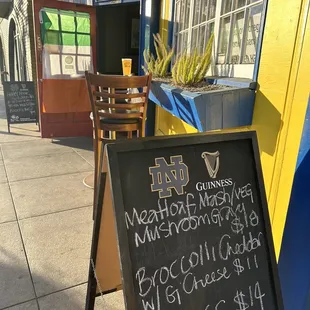 ND
GUINNESS
Meatloaf, Mash/VEG
Mushroom Gravy
$18
Broccolli Cheddar
W/ Gr Cheese $11
$14